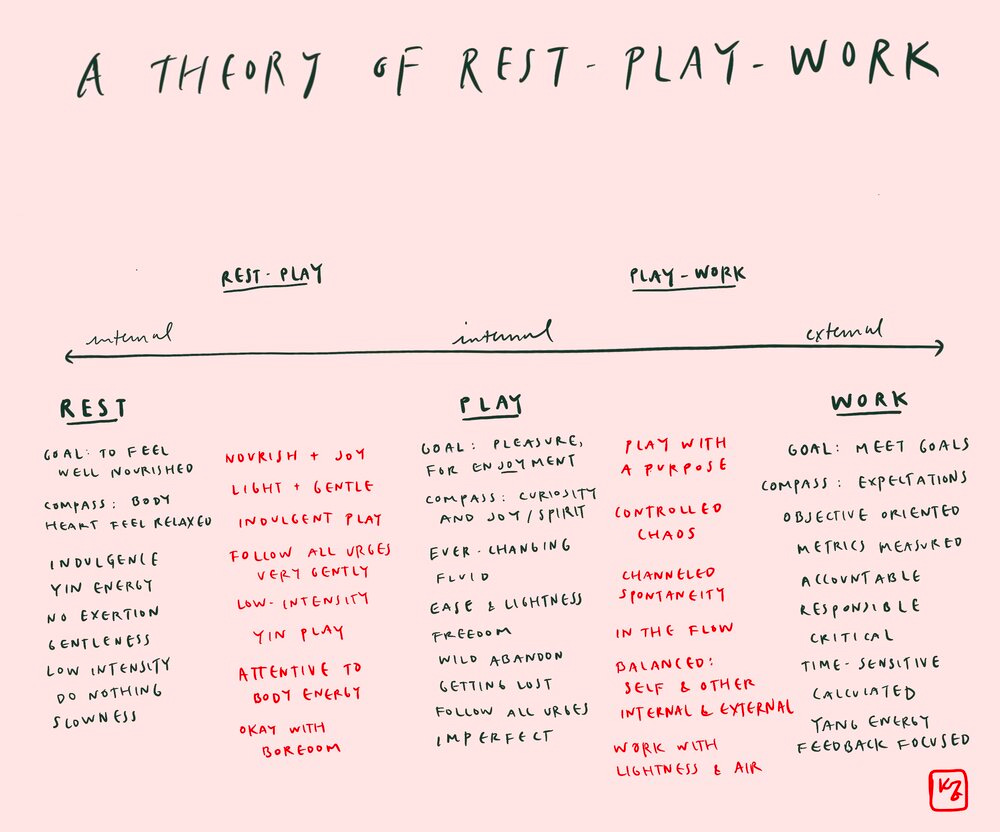 A THEORY OF REST-PLAY-WORK
REST-PLAY
PLAY-WORK
internal
internal
external
REST
GOAL: TO FEEL
WELL NOURISHED
COMPASS: BODY
HEART FEEL RELAXED
INDULGENCE
YIN ENERGY
NO EXERTION
GENTLENESS
LOW INTENSITY
DO NOTHING
SLOWNESS
NOURISH + JOY
LIGHT + GENTLE
INDULGENT PLAY
FOLLOW ALL URGES
VERY GENTLY
LOW-INTENSITY
YIN PLAY
ATTENTIVE TO
BODY ENERGY
OKAY WITH
BOREDOM
PLAY
GOAL: PLEASURE,
FOR ENJOYMENT
COMPASS: CURIOSITY
AND JOY/SPIRIT
EVER-CHANGING
FLUID
EASE & LIGHTNESS
FREEDOM
WILD ABANDON
GETTING LOST
FOLLOW ALL URGES
IMPERFECT
PLAY WITH
A PURPOSE
CONTROLLED
CHAOS
CHANNELED
SPONTANEITY
IN THE FLOW
BALANCED:
SELF & OTHER
INTERNAL & EXTERNAL
WORK WITH
LIGHTNESS & AIR
WORK
GOAL: MEET GOALS
COMPASS: EXPECTATIONS
OBJECTIVE ORIENTED
METRICS MEASURED
ACCOUNTABLE
RESPONSIBLE
CRITICAL
TIME-SENSITIVE
CALCULATED
YANG ENERGY
FEEDBACK FOCUSED